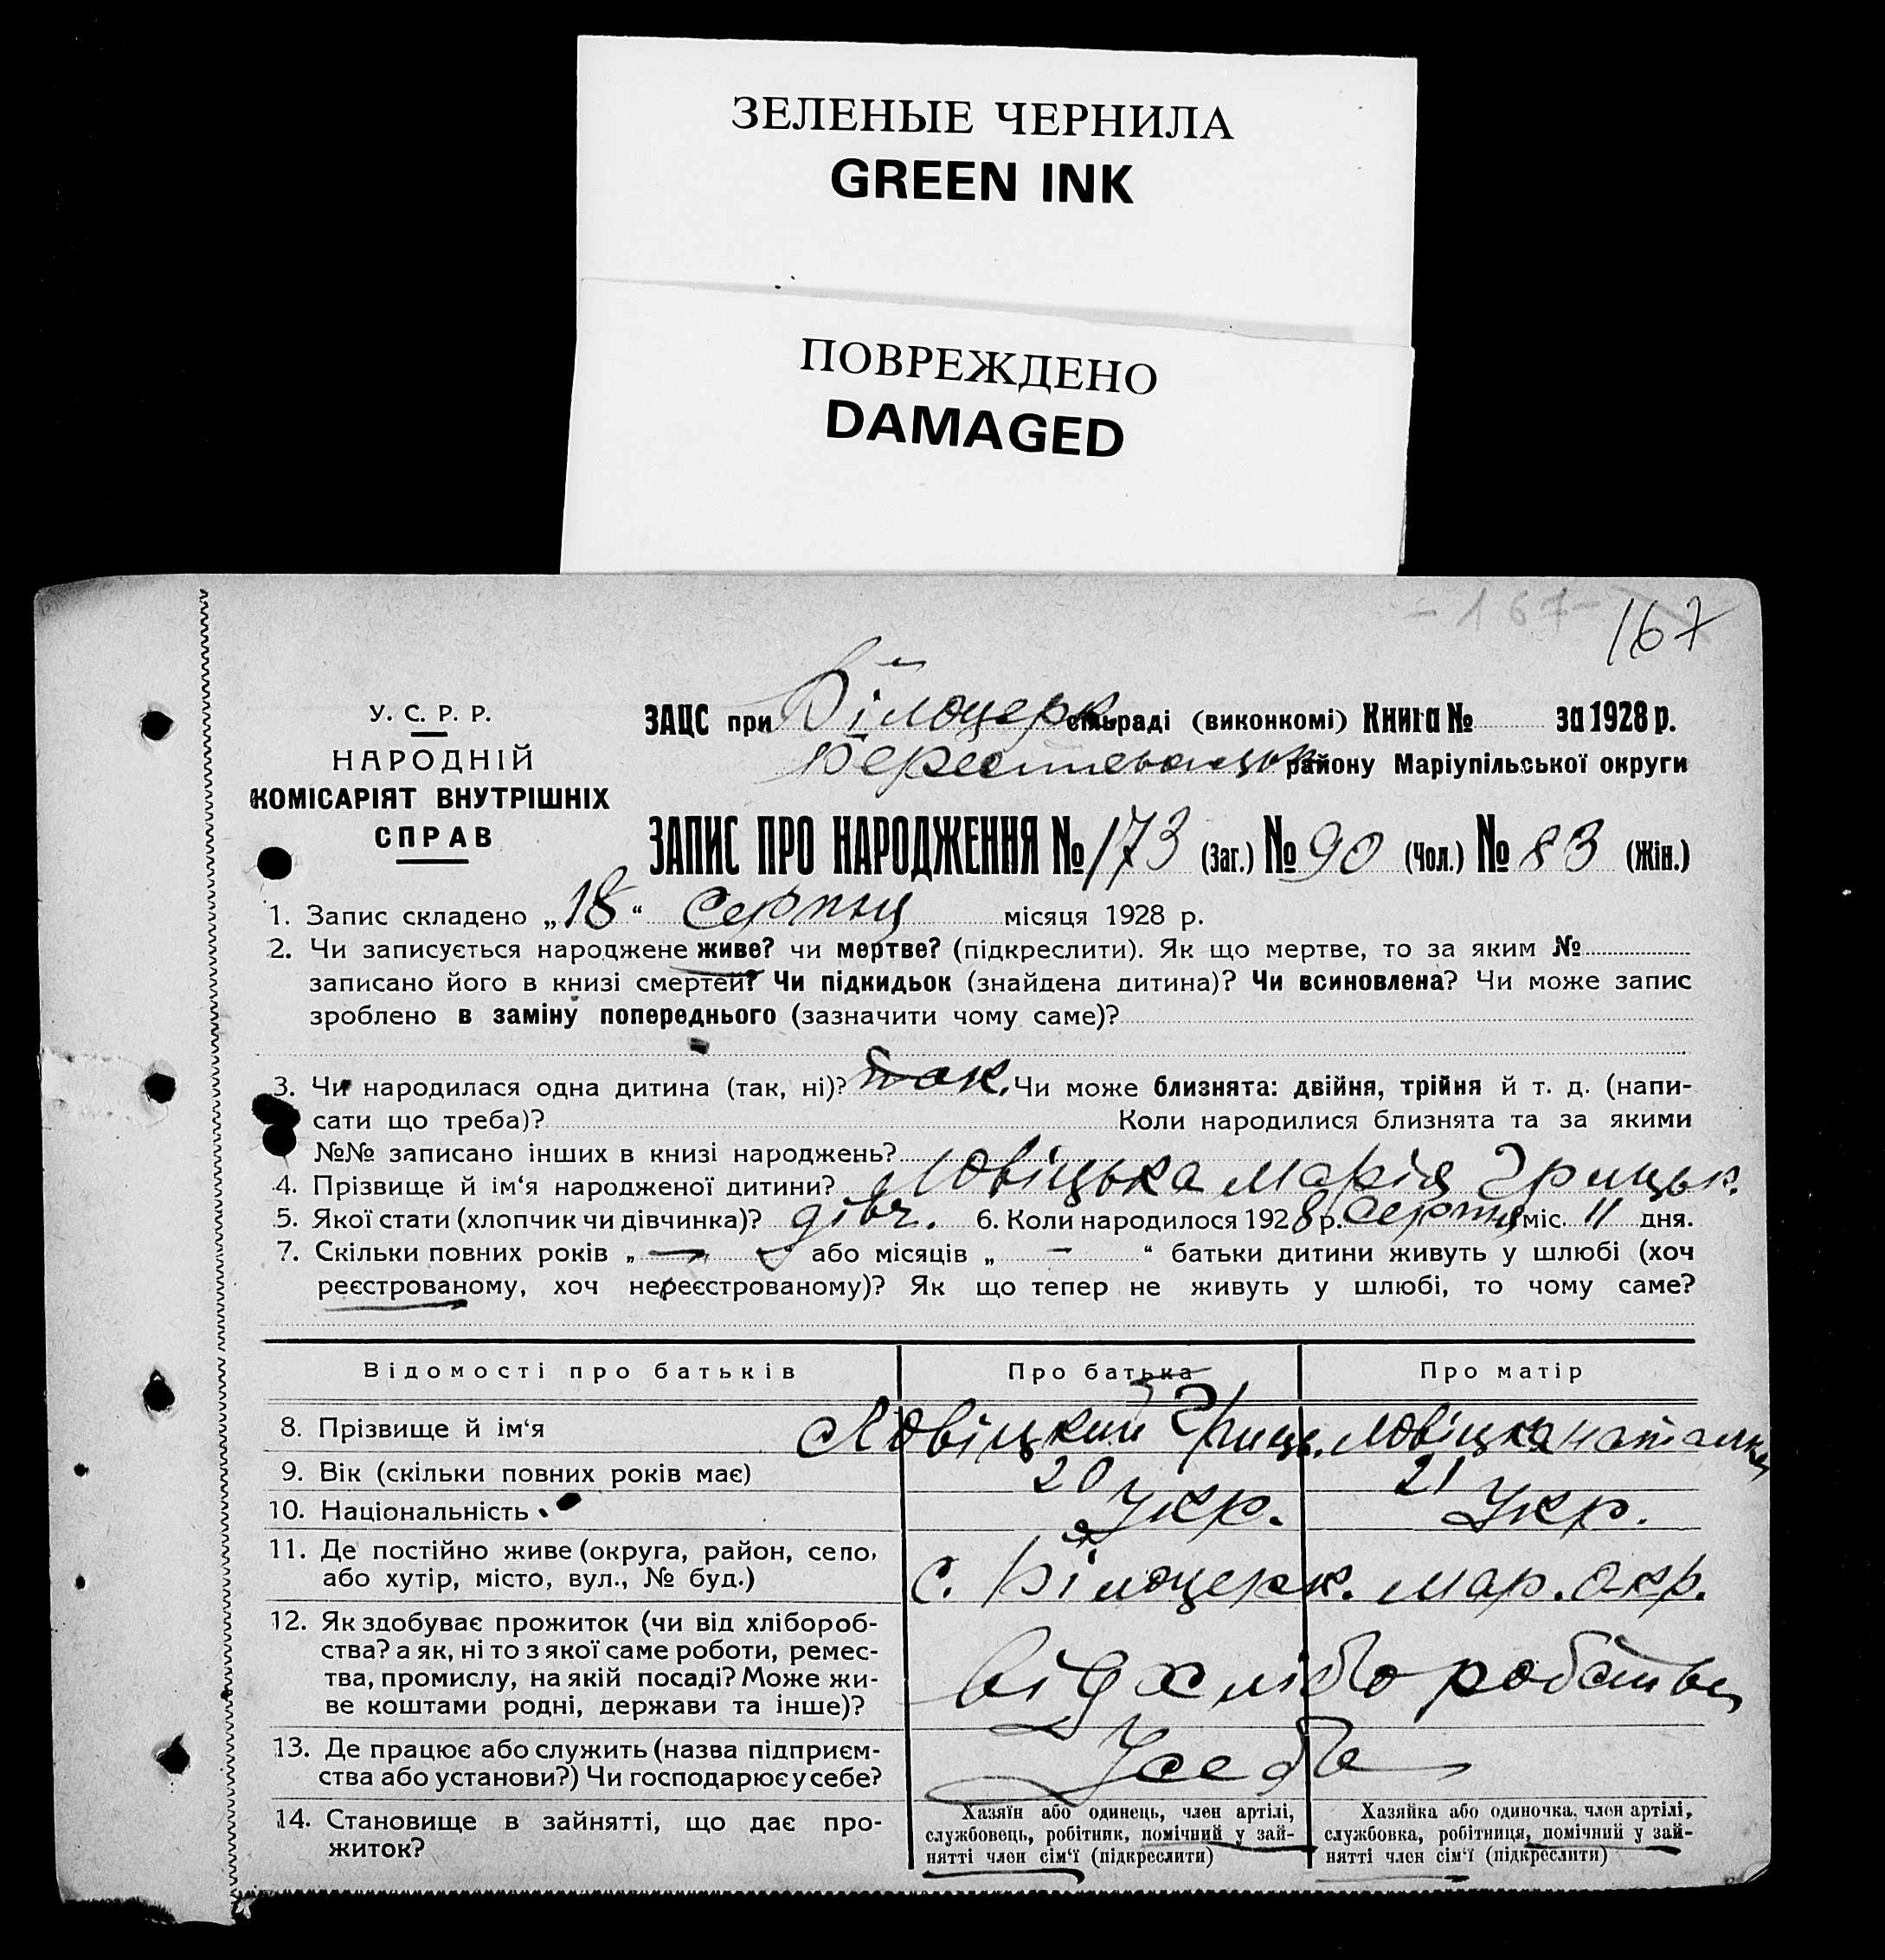 ЗЕЛЕНЫЕ ЧЕРНИЛА
GREEN INK
ПОВРЕЖДЕНО
DAMAGED
- 167 -
167
У. С. Р. Р.
НАРОДНІЙ
КОМІСАРІЯТ ВНУТРІШНІХ
СПРАВ
ЗАЦС при Білоцерк. сільраді (виконкомі) Книга № за 1928 р.
району Маріупільської округи
ЗАПИС ПРО НАРОДЖЕННЯ № 173 (Заг.) № 90 (Чол.) № 83 (Жін.)
1. Запис складено „18“ Серпня місяця 1928 р.
2. Чи записується народжене живе? чи мертве? (підкреслити). Як що мертве, то за яким №
записано його в книзі смертей? Чи підкидьок (знайдена дитина)? Чи всиновлена? Чи може запис
зроблено в заміну попереднього (зазначити чому саме)?
3. Чи народилася одна дитина (так, ні)? так. Чи може близнята: двійня, трійня й т. д. (напи-
сати що треба)? Коли народилися близнята та за якими
№№ записано інших в книзі народжень?
4. Прізвище й ім‘я народженої дитини? Ловіцька Марія Грицьк.
5. Якої стати (хлопчик чи дівчинка)? дівч. 6. Коли народилося 1928 р. Серпня міс. 11 дня.
7. Скільки повних років „ — “ або місяців „ — “ батьки дитини живуть у шлюбі (хоч
реєстрованому, хоч нереєстрованому)? Як що тепер не живуть у шлюбі, то чому саме?
Відомості про батьків Про батька Про матір
8. Прізвище й ім‘я Ловіцкий Гриць. Ловіцка Наталка
9. Вік (скільки повних років має) 20 21
10. Національність Укр. Укр.
11. Де постійно живе (округа, район, село,
або хутір, місто, вул., № буд.) с. Білоцерк. Мар. Окр.
12. Як здобуває прожиток (чи від хлібороб-
ства? а як, ні то з якої саме роботи, ремес-
тва, промислу, на якій посаді? Може жи-
ве коштами родні, держави та інше)? від хліборобства
13. Де працює або служить (назва підприєм-
ства або установи?) Чи господарює у себе? У себе
14. Становище в зайнятті, що дає про-
житок?
Хазяїн або одинець, член артілі,
службовець, робітник, помічний у зай-
нятті член сім‘ї (підкреслити)
Хазяйка або одиночка, член артілі,
службовка, робітниця, помічний у зай-
нятті член сім‘ї (підкреслити)